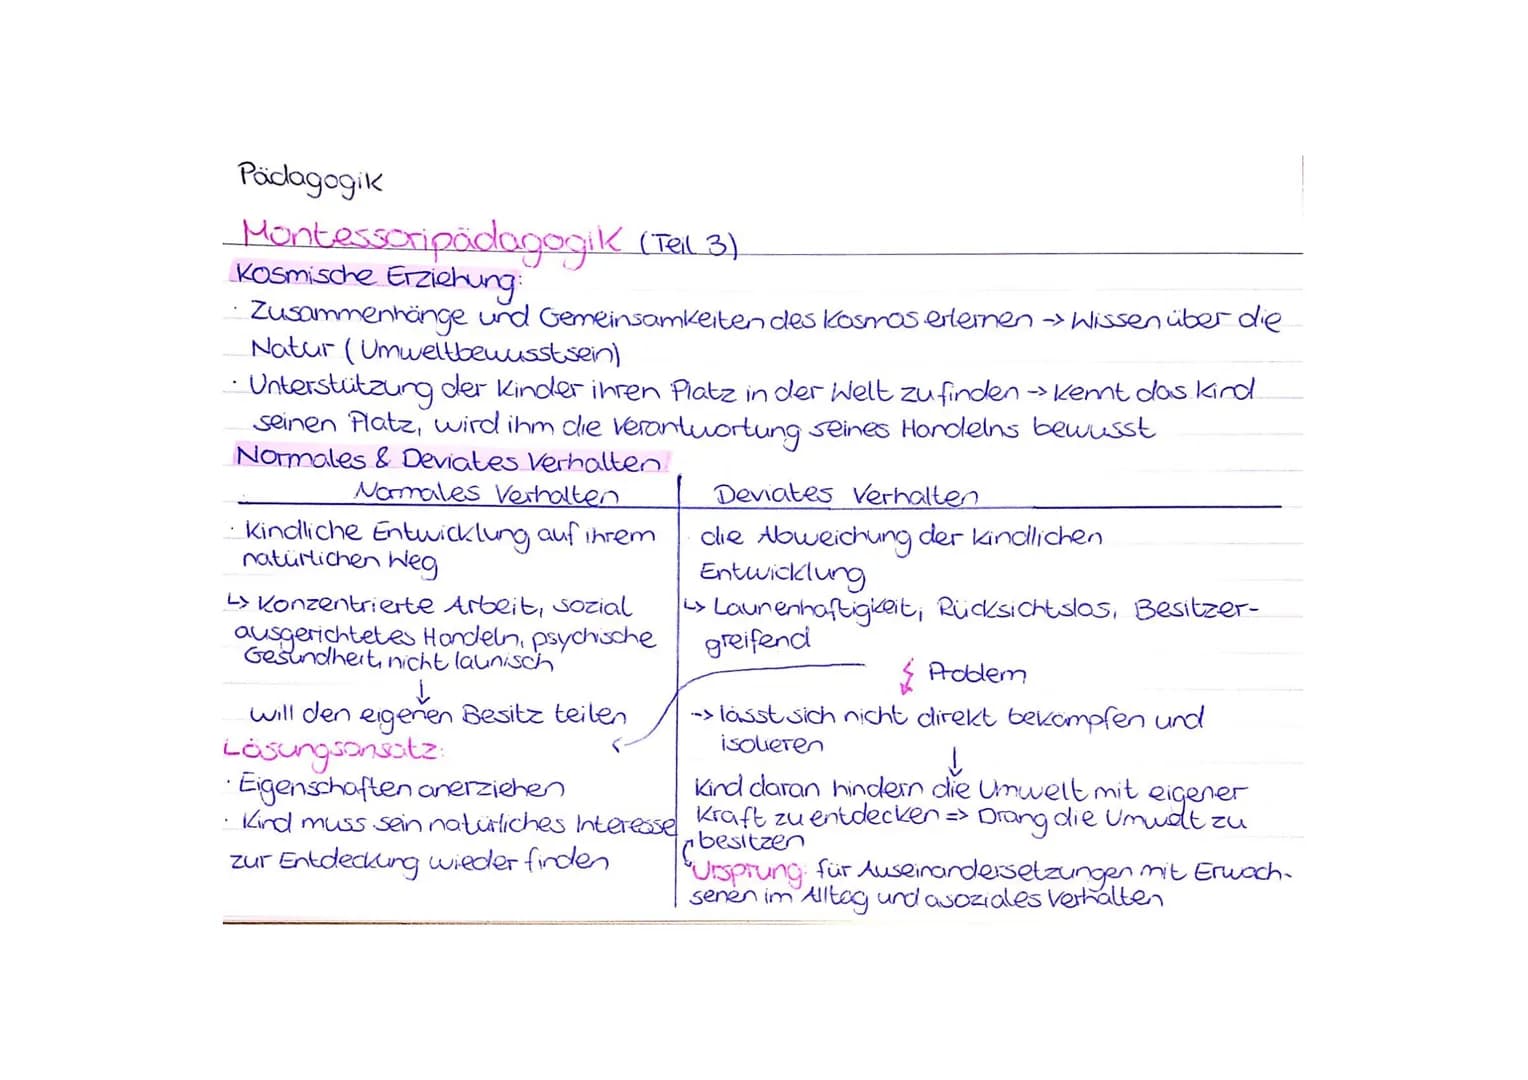 Pädagogik
Montessoripädagogik (Teil 3)
Kosmische Erziehung:
· Zusammenhänge und Gemeinsamkeiten des Kosmos erlernen -> Wissen über die
Natur (Umweltbewusstsein)
· Unterstützung der Kinder ihren Platz in der Welt zu finden -> kennt das Kind
seinen Platz, wird ihm die Verantwortung seines Handelns bewusst
Normales & Deviates Verhalten:
Normales Verhalten
· Kindliche Entwicklung auf ihrem
natürlichen Weg
↳ Konzentrierte Arbeit, sozial
ausgerichtetes Handeln, psychische
Gesundheit, nicht launisch
↓
will den eigenen Besitz teilen
Lösungsansatz:
· Eigenschaften anerziehen
· Kind muss sein natürliches Interesse
zur Entdeckung wieder finden
Deviates Verhalten
die Abweichung der kindlichen
Entwicklung
↳ Launenhaftigkeit, Rücksichtslos, Besitzer-
greifend
Problem
-> lässt sich nicht direkt bekämpfen und
isolieren
↓
Kind daran hindern die Umwelt mit eigener
Kraft zu entdecken => Drang die Umwelt zu
besitzen
Ursprung: für Auseinandersetzungen mit Erwach-
senen im Alltag und asoziales Verhalten